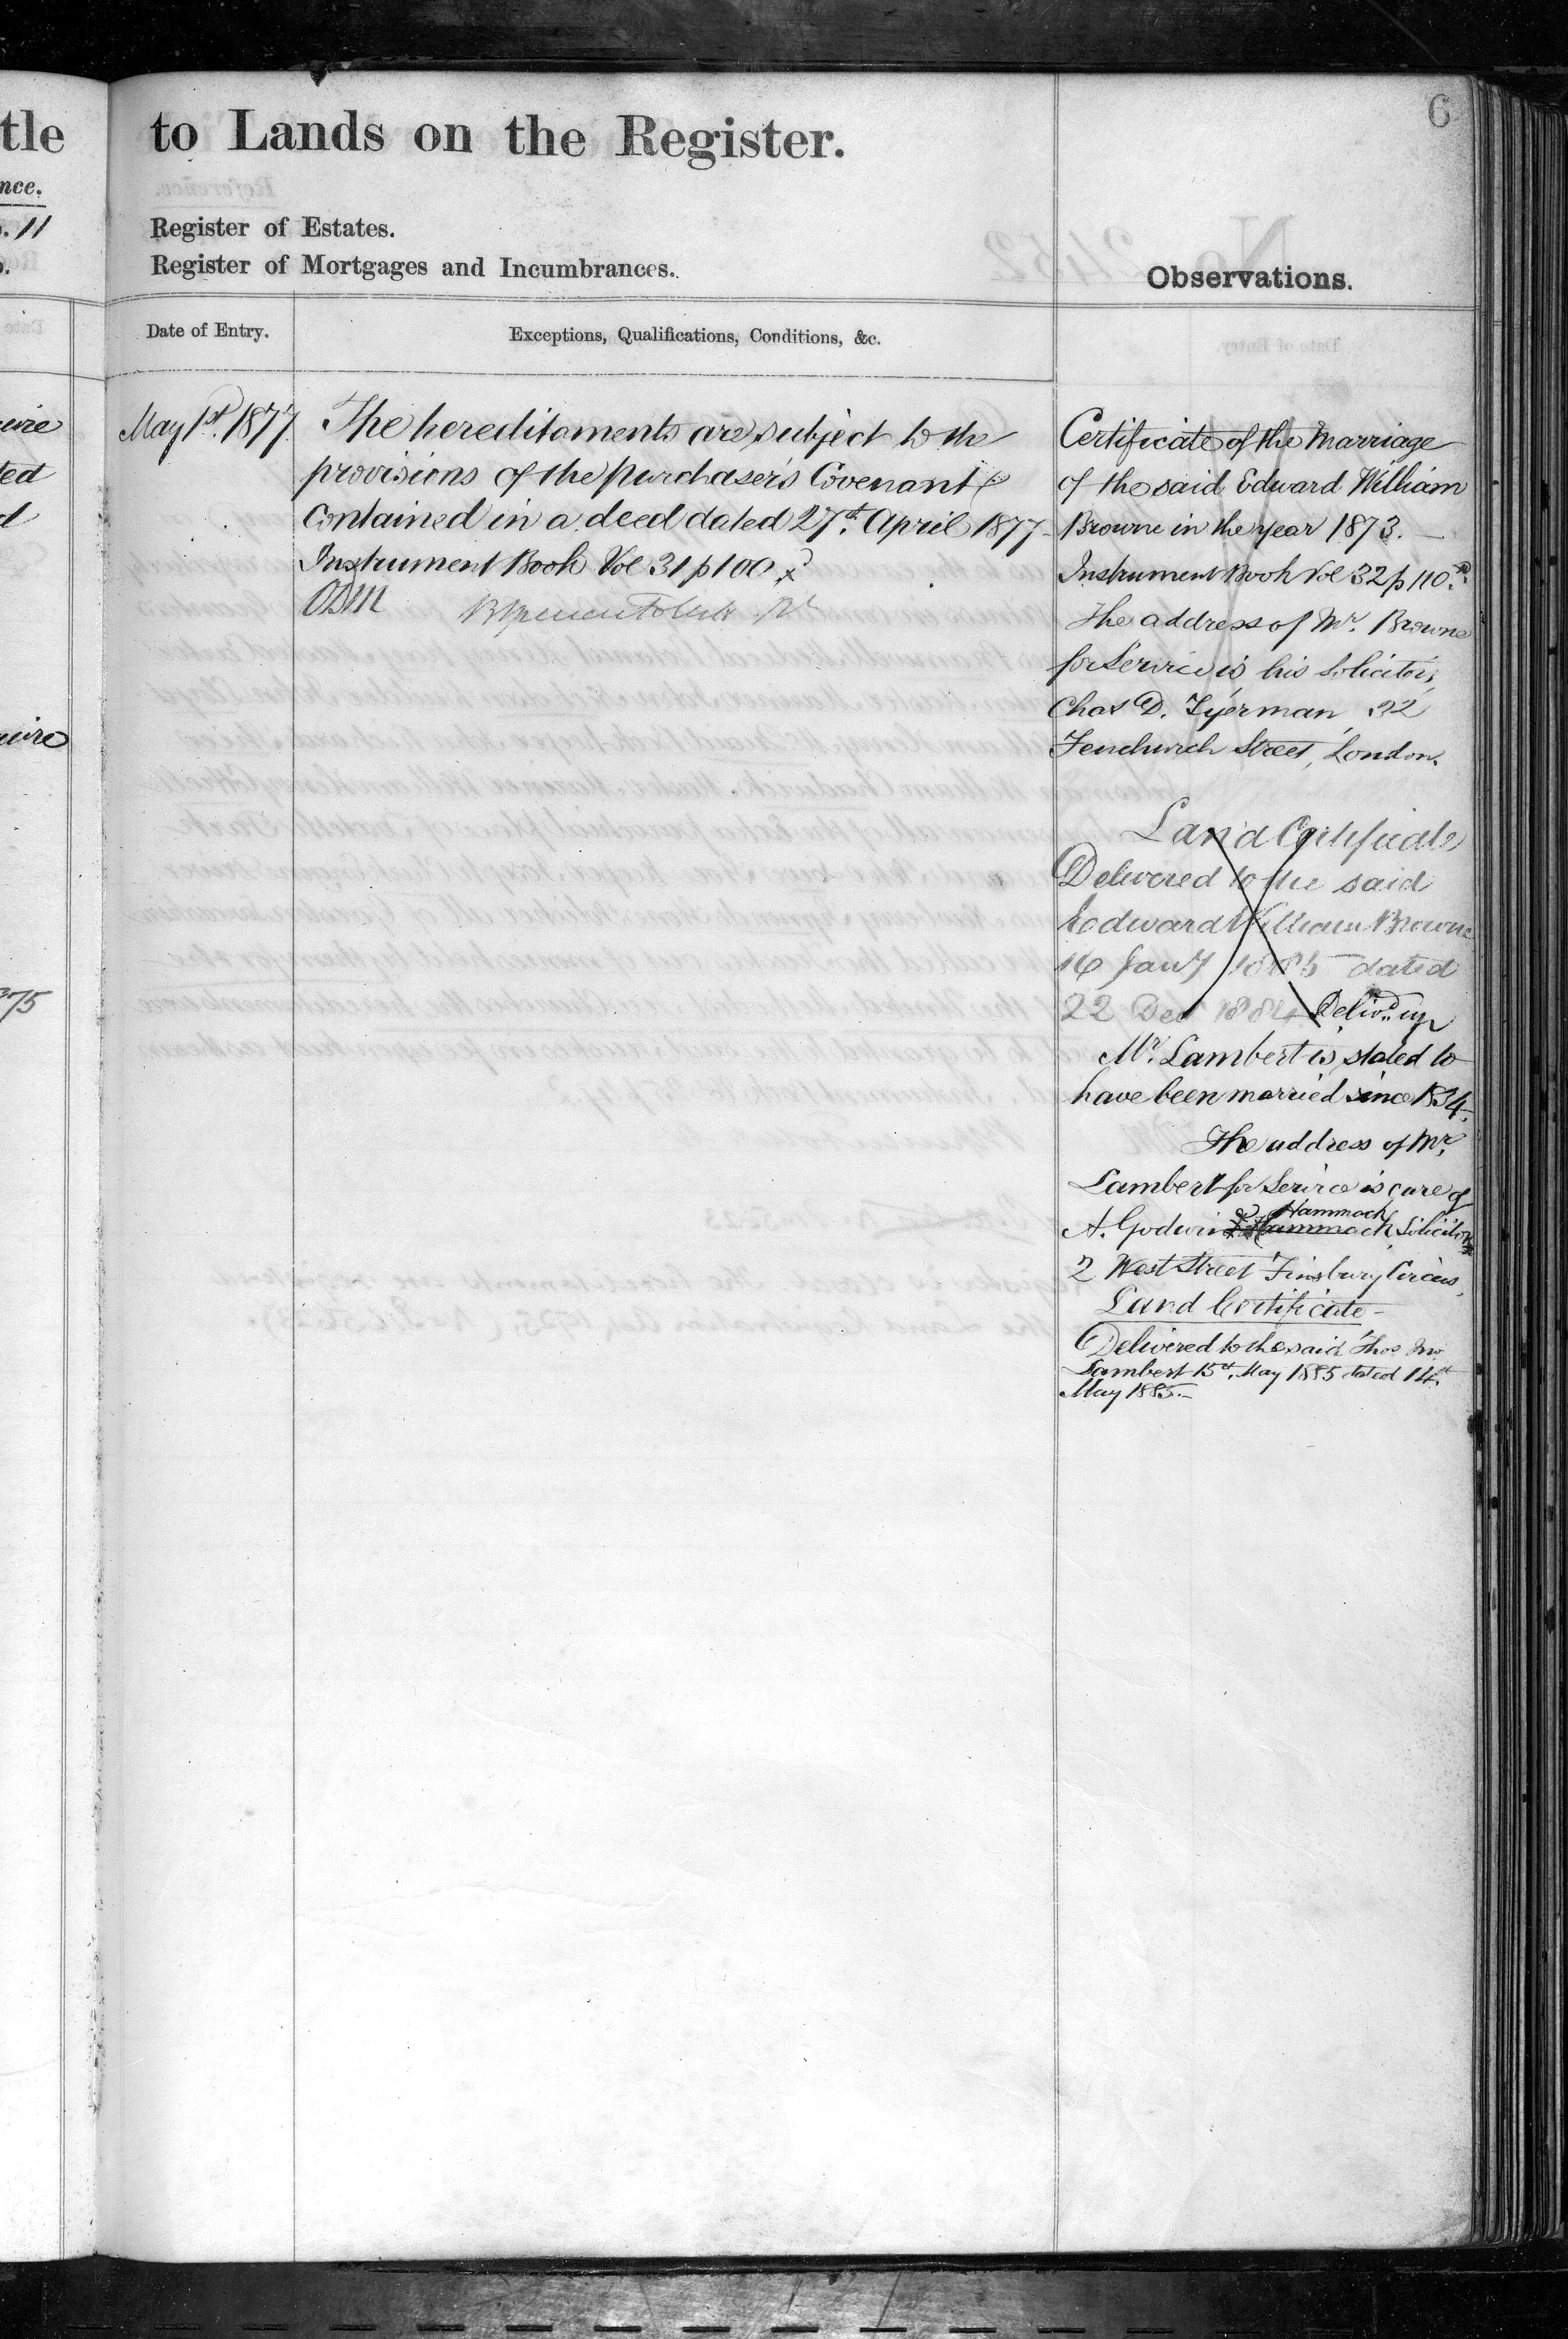 tle
nce.
. 11
to Lands on the Register.
6
Register of Estates.
Register of Mortgages and Incumbrances.
Observations.
Date of Entry.
Exceptions, Qualifications, Conditions, &c.
May 1st. 1877.
The hereditaments are subject to the
provisions of the purchaser's Covenant
contained in a deed dated 27th. April 1877
Instrument Book Vol 31 p 100
Certificate of the Marriage
of the said Edward William
Browne in the year 1873.
Instrument Book Vol 32 p 110.
The address of Mr. Browne
for Service is his Solicitor,
Chas D. Tyerman, 22
Fenchurch Street, London.
Land Certificate
Delivered to the said
Edward William Browne
16 Jany 1885 dated
22 Dec 1884 Delivd. up
Mr. Lambert is stated to
have been married since 1834.
The address of Mr.
Lambert for Service is care of
Hammack
A. Godwin & Hammack Solicitors
2 West Street Finsbury Circus,
Land Certificate
Delivered to the said Thos. Jno.
Lambert 15th. May 1885 dated 14th.
May 1885.
ted
75